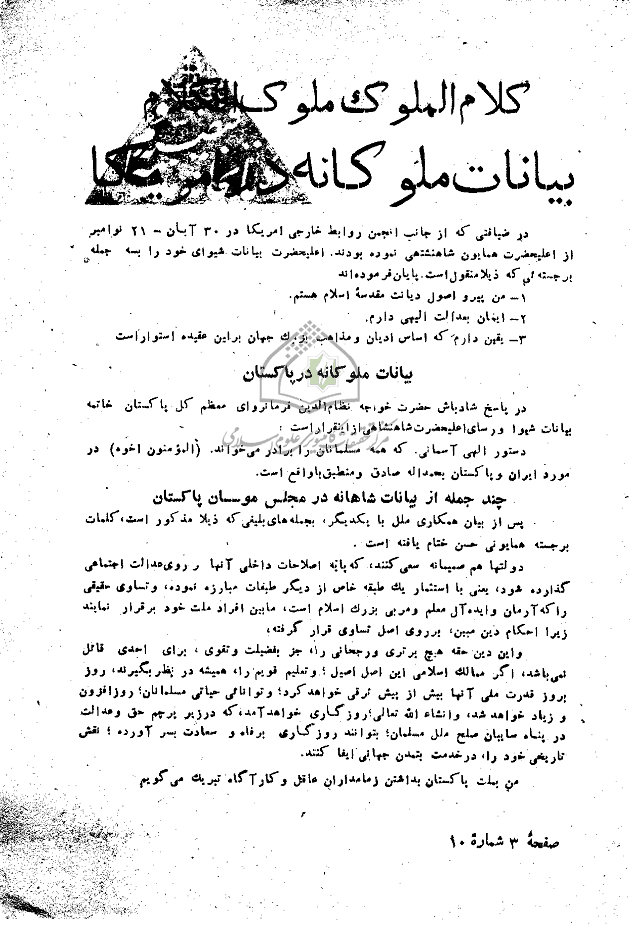 کلام الملوک ملوک الکلام
بیانات ملوکانه در امریکا
در ضیافتی که از جانب انجمن روابط خارجی امریکا در ۳۰ آبان - ۲۱ نوامبر
از اعلیحضرت همایون شاهنشاهی نموده بودند. اعلیحضرت بیانات شیوای خود را بسه جمله
برجسته ئی که ذیلا منقول است. پایان فرموده اند
۱- من پیرو اصول دیانت مقدسهٔ اسلام هستم.
۲- ایمان بعدالت الهی دارم.
۳- یقین دارم که اساس ادیان و مذاهب بزرك جهان براین عقیده استوار است
بیانات ملوکانه در پاکستان
در پاسخ شادباش حضرت خواجه نظام‌الدین فرمانروای معظم کل پاکستان خاتمه
بیانات شیوا و رسای اعلیحضرت شاهنشاهی از اینقرار است:
مرکز تحقیقات کامپیوتری علوم اسلامی
دستور الهی آسمانی. که همه مسلمانان را برادر می‌خواند. (المؤمنون اخوه) در
مورد ایران و پاکستان بحمداله صادق و منطبق با واقع است.
چند جمله از بیانات شاهانه در مجلس موسسان پاکستان
پس از بیان همکاری ملل با یکدیگر، بجمله‌های بلیغی که ذیلا مذکور است، کلمات
برجسته همایونی حسن ختام یافته است.
دولتها هم صمیمانه سعی کنند، که پایهٔ اصلاحات داخلی آنها بر روی عدالت اجتماعی
گذارده شود، یعنی با استثمار یك طبقه خاص از دیگر طبقات مبارزه نموده، و تساوی حقیقی
را که آرمان و ایده‌آل معلم و مربی بزرك اسلام است، مابین افراد ملت خود برقرار نمایند
زیرا احکام دین مبین، برروی اصل تساوی قرار گرفته،
واین دین حقه هیچ برتری ورجحانی را، جز بفضیلت و تقوی، برای احدی قائل
نمی‌باشد، اگر ممالك اسلامی این اصل اصیل؛ و تعلیم قویم را، همیشه در نظر بگیرند، روز
بروز قدرت ملی آنها بیش از پیش ترقی خواهد کرد؛ و توانائی حیاتی مسلمانان؛ روزافزون
و زیاد خواهد شد، وانشاء الله تعالی؛ روزگاری خواهد آمد، که درزیر پرچم حق وعدالت
در پناه سایبان صلح ملل مسلمان؛ بتوانند روزگاری برفاه و سعادت بسر آورده؛ نقش
تاریخی خود را، درخدمت بتمدن جهانی ایفا کنند.
من بملت پاکستان بداشتن زمامداران عاقل و کارآگاه تبریك می‌گویم
صفحهٔ ۳ شمارهٔ ۱۰